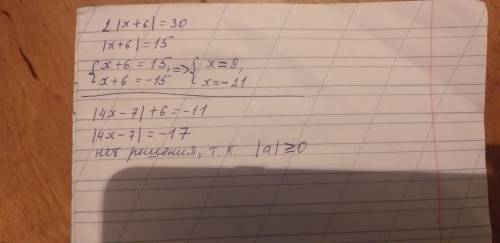 2|x+6|=30
|x+6|=15
{x+6=15, => {x=9,
x+6=-15 x=-21
|4x-7|+6=-11
|4x-7|=-17
нет решения, т.к. |a|≥0